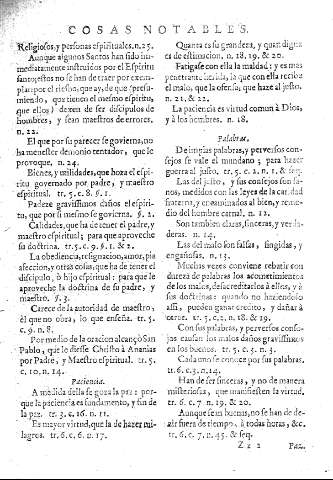 COSAS NOTABLES.
Religiosos, y personas espirituales. n. 25.
Aunque algunos Santos han sido inmediatamente
instruidos por el Espiritu
santo, estos no se han de traer por exemplar:
por el riesgo, que ay, de que (presumiendo,
que tienen el mesmo espiritu,
que ellos) dexen de ser discipulos de
hombres, y sean maestros de errores.
n. 22.
El que por su parecer se govierna, no
ha menester demonio tentador, que le
provoque. n. 24.
Bienes, y utilidades, que goza el espiritu
governado por padre, y maestro
espiritual. tr. 5. c. 8. §. 1.
Padece gravissimos daños el espiritu,
que por si mesmo se govierna. §. 2.
Calidades, que ha de tener el padre, y
maestro espiritual; para que aproveche
su doctrina. tr. 5. c. 9. §. 1. & 2.
La obediencia, resignacion, amor, pia
afeccion, y otras cosas, que ha de tener el
discipulo, ò hijo espiritual: para que le
aproveche la doctrina de su padre, y
maestro. §. 3.
Carece de la autoridad de maestro,
el que no obra, lo que enseña. tr. 5.
c. 9. n. 8.
Por medio de la oracion alcançò San
Pablo, que le diesse Christo à Ananias
por Padre, y Maestro espiritual. tr. 5.
c. 10. n. 14.
Paciencia.
A medida della se goza la paz: porque
la paciencia es fundamento, y fin de
la paz. tr. 3. c. 16. n. 11.
Es mayor virtud, que la de hazer milagros.
tr. 6. c. 6. n. 17.
Quanta es su grandeza, y quan digna
es de estimacion. n. 18. 19. & 20.
Fatigase con ella la maldad: y es mas
penetrante herida, la que con ella recibe
el malo, que la ofensa, que haze al justo.
n. 21. & 22.
La paciencia es virtud comun à Dios,
y à los hombres. n. 18.
Palabras.
De impias palabras, y perversos consejos
se vale el mundano; para hazer
guerra al justo. tr. 5. c. 2. n. 1. & seq.
Las del justo, y sus consejos son sanos,
medidos con las leyes de la caridad
fraterna, y encaminados al bien, y remedio
del hombre carnal. n. 12.
Son tambien claras, sinceras, y verdaderas.
n. 14.
Las del malo son falsas, fingidas, y
engañosas. n. 13.
Muchas vezes conviene rebatir con
dureza de palabras los acometimientos
de los malos, desacreditarlos à ellos, y à
sus doctrinas: quando no haziendolo
assi, pueden ganar credito, y dañar à
otros. tr. 5. c. 2. n. 18. & 19.
Con sus palabras, y perversos consejos
causan los malos daños gravissimos
en los buenos. tr. 5. c. 3. n. 3.
Cada uno se conoce por sus palabras.
tr. 6. c. 3. n. 14.
Han de ser sinceras, y no de manera
misteriosas, que manifiesten la virtud.
tr. 6. c. 7. n. 19. & 20.
Aunque sean buenas, no se han de dezir
fuera de tiempo, à todas horas, &c.
tr. 6. c. 7. n. 45. & seq.
Zz 2 Paz.